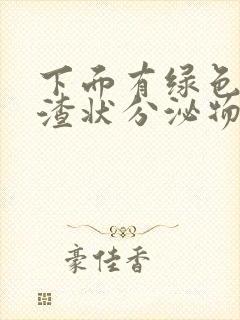 下而有绿色
渣状分泌物
豪佳香